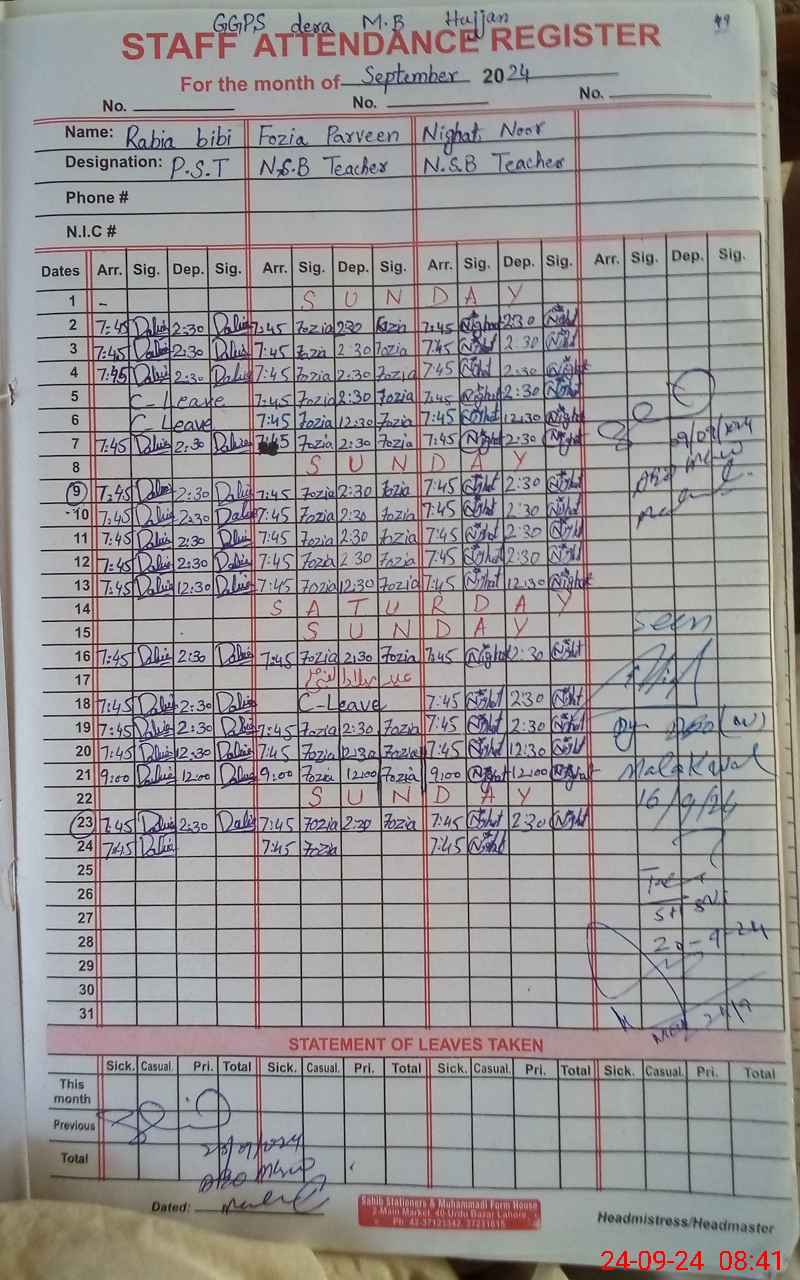 GGPS dera M.B Hujjan
49
STAFF ATTENDANCE REGISTER
For the month of September 2024
No. No. No.
Name: Rabia bibi Fozia Parveen Nighat Noor
Designation: P.S.T N.S.B Teacher N.S.B Teacher
Phone #
N.I.C #
Dates Arr. Sig. Dep. Sig. Arr. Sig. Dep. Sig. Arr. Sig. Dep. Sig. Arr. Sig. Dep. Sig.
1 - S U N D A Y
2 7:45 2:30 7:45 Fozia 2:30 Fozia 7:45 Nighat 2:30 Night
3 7:45 2:30 7:45 Fozia 2:30 Fozia 7:45 Night 2:30 Night
4 7:45 2:30 7:45 Fozia 2:30 Fozia 7:45 Night 2:30 Night
5 C-Leave 7:45 Fozia 2:30 Fozia 7:45 Night 2:30 Night
6 C-Leave 7:45 Fozia 12:30 Fozia 7:45 Night 12:30 Night
7 7:45 2:30 7:45 Fozia 2:30 Fozia 7:45 Night 2:30 Night 09/09/2024
8 S U N D A Y
9 7:45 2:30 7:45 Fozia 2:30 Fozia 7:45 Night 2:30 Night
10 7:45 2:30 7:45 Fozia 2:30 Fozia 7:45 Night 2:30 Night
11 7:45 2:30 7:45 Fozia 2:30 Fozia 7:45 Night 2:30 Night
12 7:45 2:30 7:45 Fozia 2:30 Fozia 7:45 Night 2:30 Night
13 7:45 12:30 7:45 Fozia 12:30 Fozia 7:45 Night 12:30 Night
14 S A T U R D A Y
15 S U N D A Y seen
16 7:45 2:30 7:45 Fozia 2:30 Fozia 7:45 Night 2:30 Night
17 عید میلاد النبی
18 7:45 2:30 C-Leave 7:45 Night 2:30 Night
19 7:45 2:30 7:45 Fozia 2:30 Fozia 7:45 Night 2:30 Night Dy DEO (W)
20 7:45 12:30 7:45 Fozia 12:30 Fozia 7:45 Night 12:30 Night
21 9:00 12:00 9:00 Fozia 12:00 Fozia 9:00 Night 12:00 Night Malakwal
22 S U N D A Y 16/9/24
23 7:45 2:30 7:45 Fozia 2:30 Fozia 7:45 Night 2:30 Night
24 7:45 7:45 Fozia 7:45 Night
25
26
27
28 20-9-24
29
30
31
STATEMENT OF LEAVES TAKEN
Sick. Casual. Pri. Total Sick. Casual. Pri. Total Sick. Casual. Pri. Total Sick. Casual. Pri. Total
This month
Previous
Total 23/09/2024
Dated:
Sahib Stationers & Muhammadi Form House
2-Main Market, 40-Urdu Bazar Lahore.
Ph: 42-37123342, 37231815
Headmistress/Headmaster
24-09-24 08:41